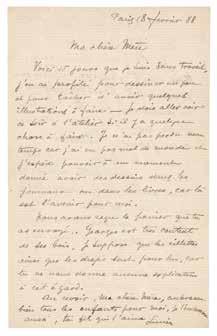 Paris 18 février 88
Ma chère Mère
Voici 15 jours que je suis sans travail,
j'en ai profité pour dessiner un peu
et pour tâcher d'avoir quelques
illustrations à faire - je dois aller voir
ce soir à l'atelier s'il y a quelque
chose à faire. Je n'ai pas perdu mon
temps car j'ai vu pas mal de monde et
j'espère pouvoir à un moment
donné avoir des dessins dans les
journaux ou dans les livres, car là
est l'avenir pour moi.
Nous avons reçu le panier que tu
as envoyé. Georges est très content
de ses bas, je suppose que les
ainsi que les draps sont pour lui, car
tu ne nous donne aucune explication
à cet égard.
Au revoir, ma chère Mère, embrasse
bien tous les enfants pour moi,
ton fils qui t'aime